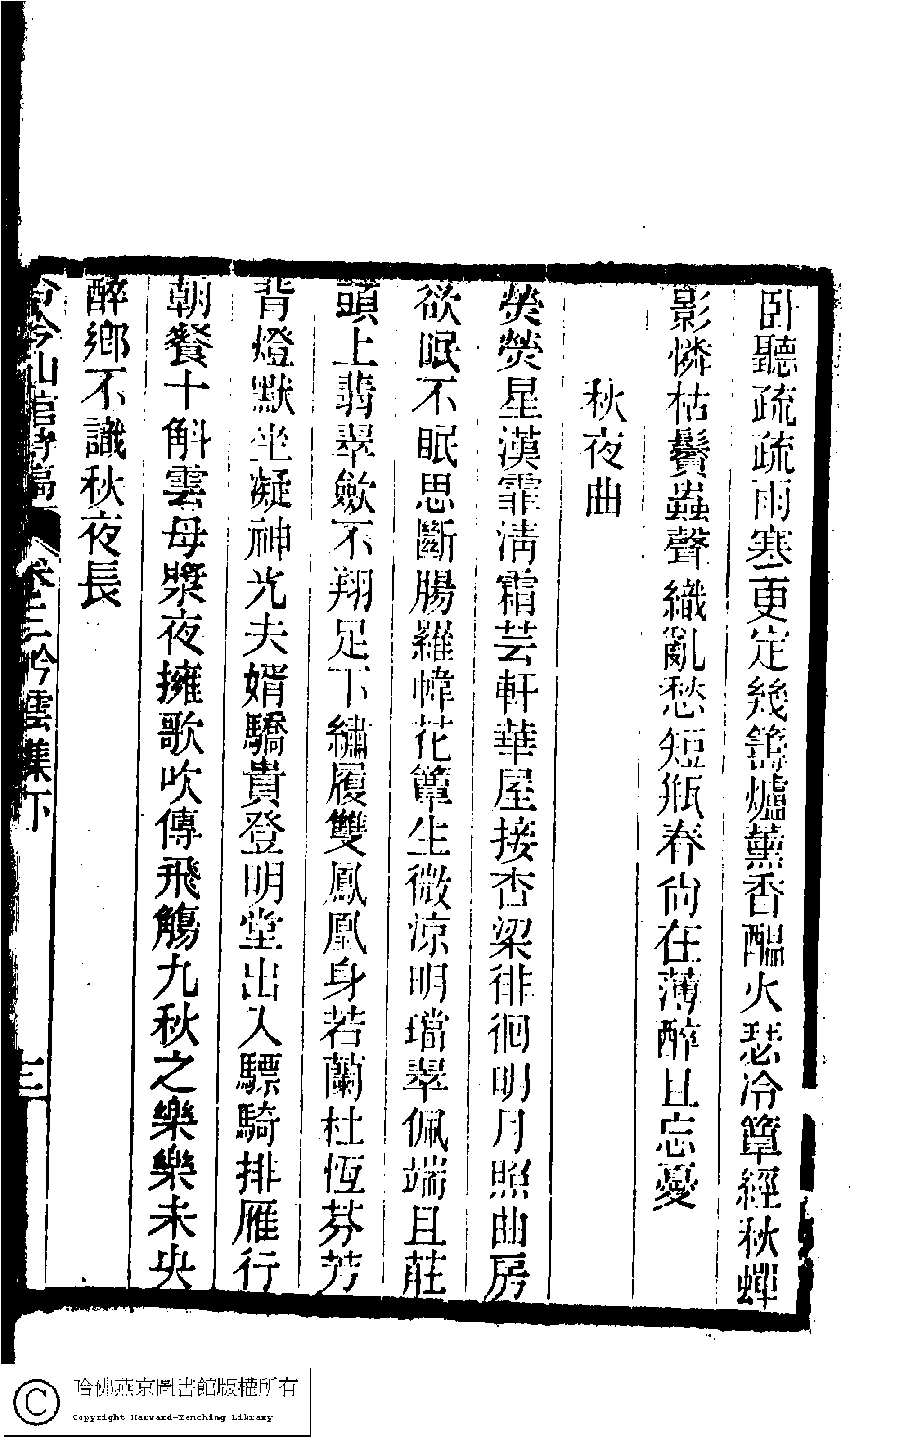 卧聽疏疏雨寒更定幾籌爐薰香醖火瑟冷簟經秋蟬
影憐枯鬢蟲聲織亂愁短瓶春尙在薄醉且忘憂
秋夜曲
熒熒星漢霏淸霜芸軒華屋接杏梁徘徊明月照曲房
欲眠不眠思斷腸羅幃花簟生微涼明璫翠佩端且莊
頭上翡翠斂不翔足下繡履雙鳳凰身若蘭杜恆芬芳
背燈默坐凝神光夫婿驕貴登明堂出入驃騎排雁行
朝餐十斛雲母漿夜擁歌吹傳飛觴九秋之樂樂未央
醉鄉不識秋夜長
山館詩稿 卷三 吟雲集下
哈佛燕京圖書館版權所有
Copyright Harvard-Yenching Library